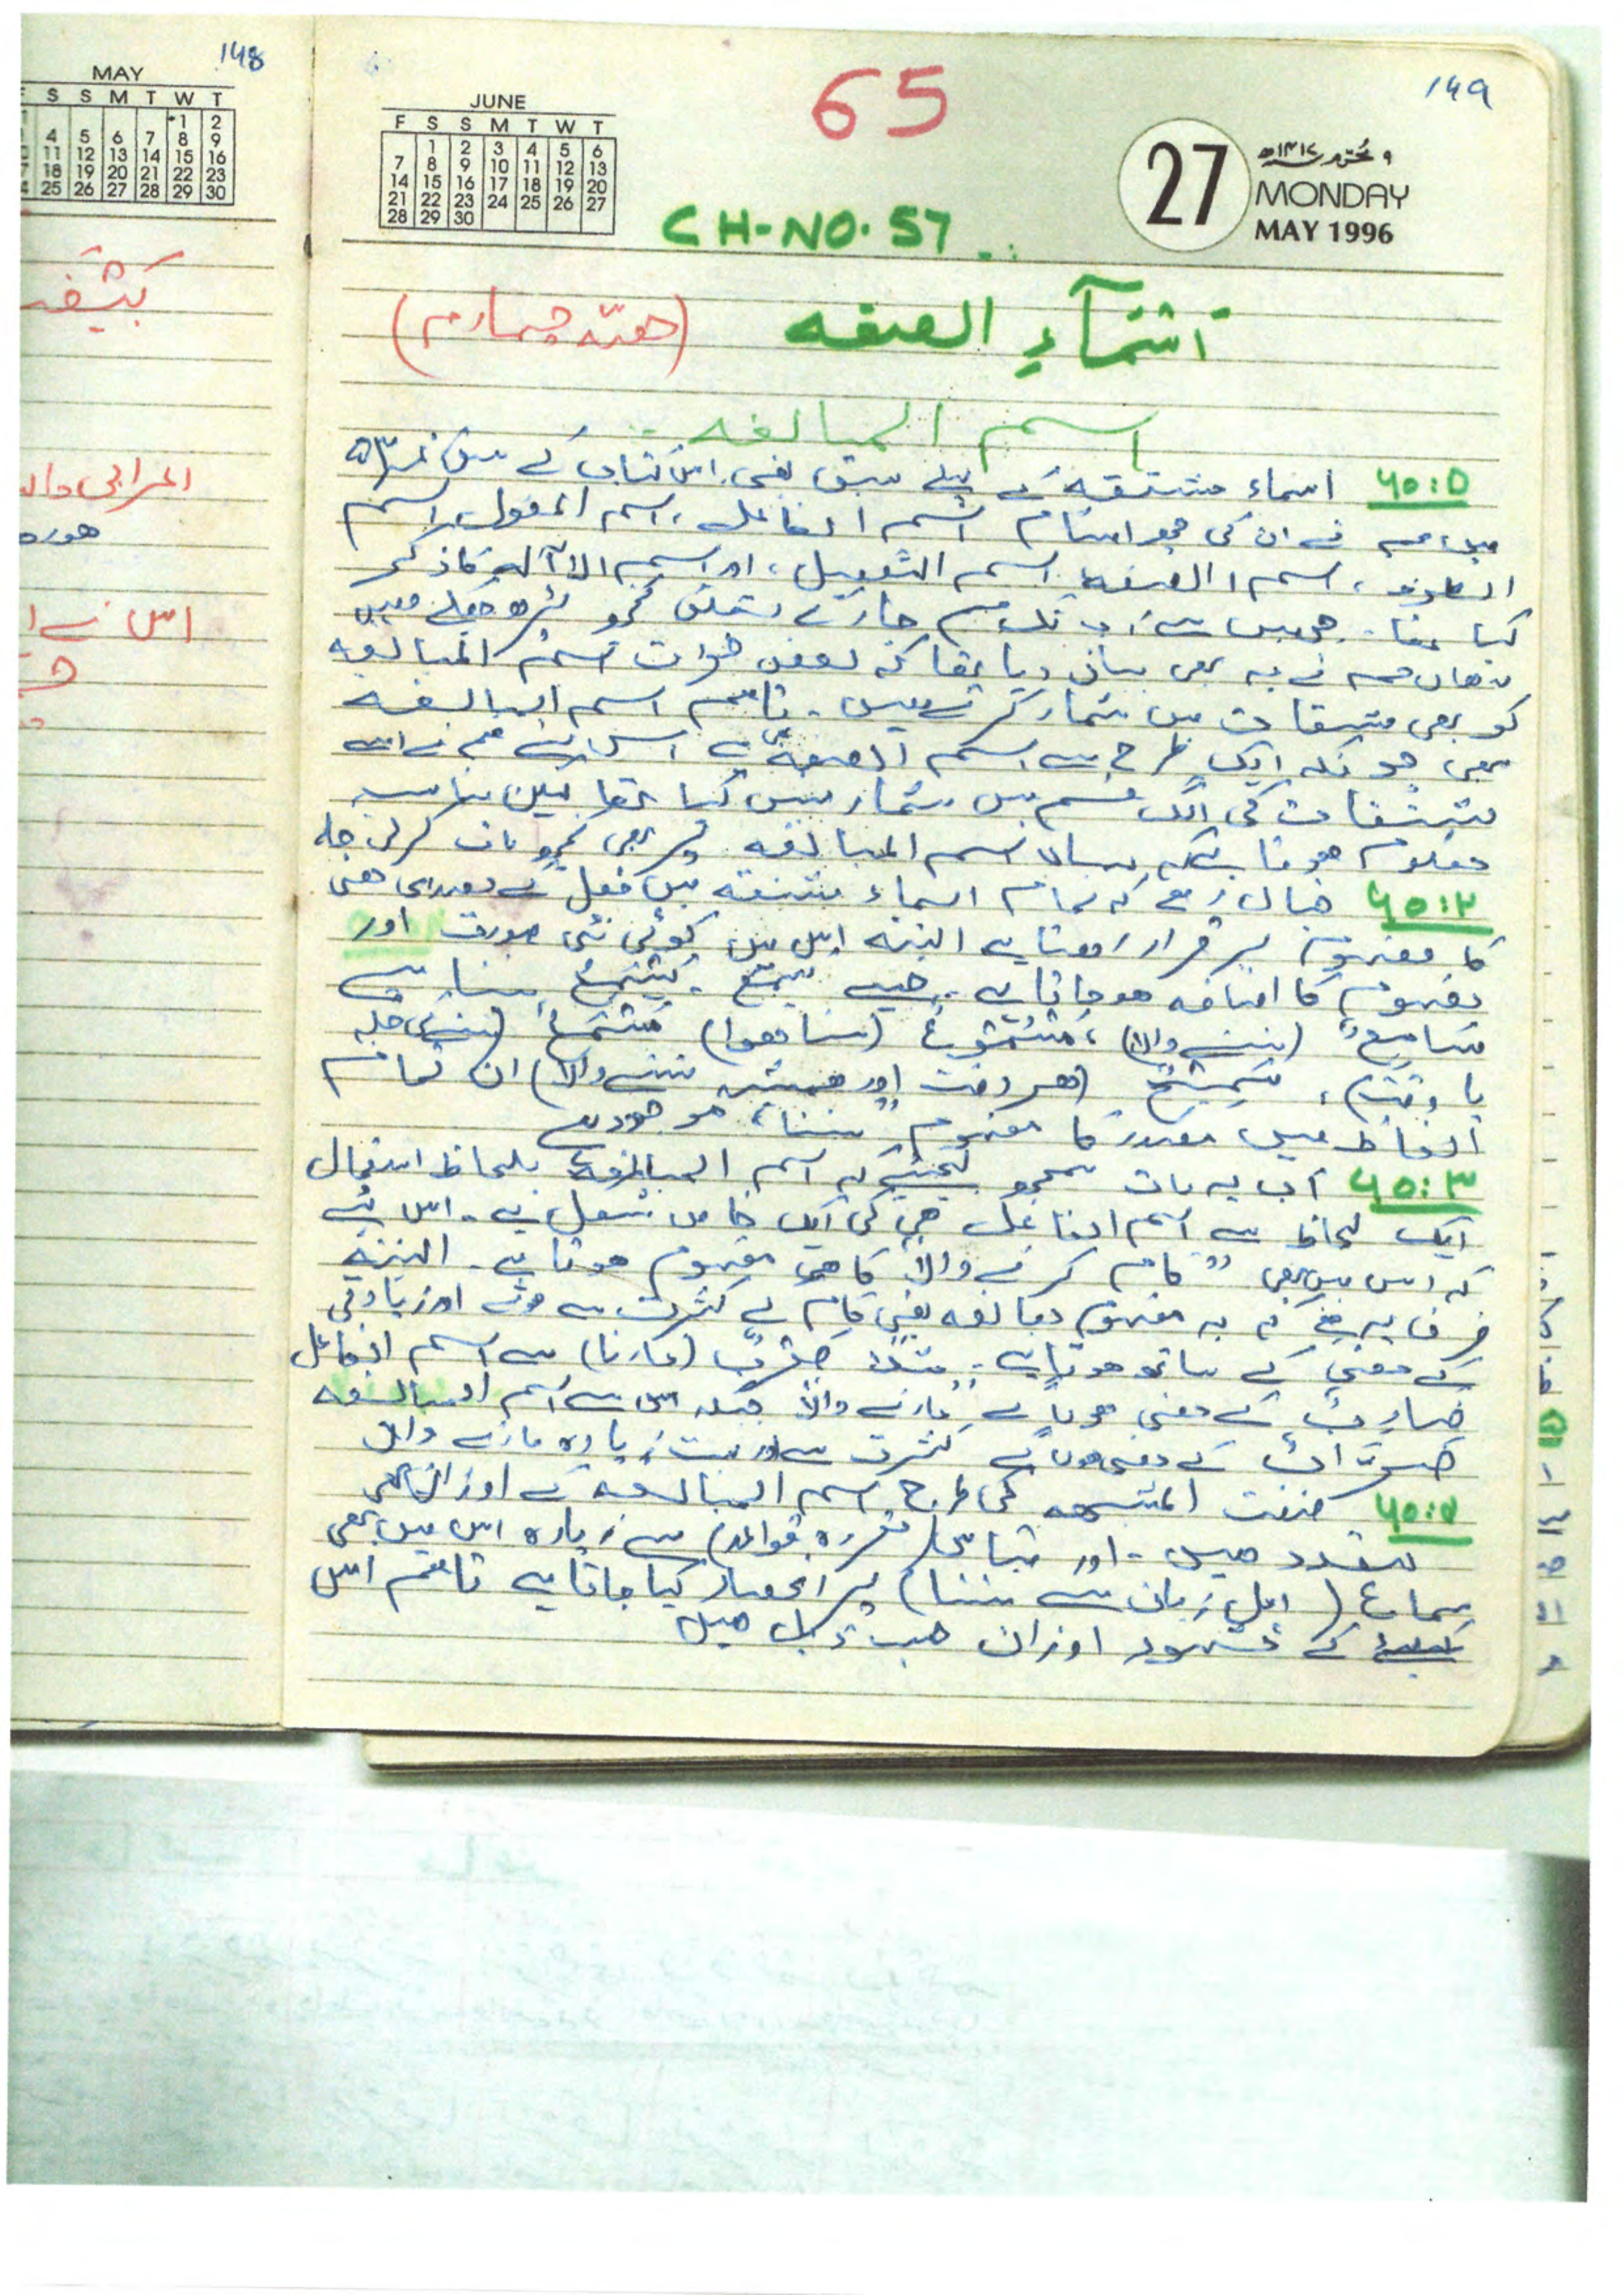 ۱۴۸
MAY
S S M T W T
1 2
4 5 6 7 8 9
11 12 13 14 15 16
18 19 20 21 22 23
25 26 27 28 29 30
اس نے
۱۴۹
65
JUNE
F S S M T W T
1 2 3 4 5 6
7 8 9 10 11 12 13
14 15 16 17 18 19 20
21 22 23 24 25 26 27
28 29 30
27
۹ محرم ۱۴۱۷ھ
MONDAY
MAY 1996
CH-NO. 57
اسمآءِ الصفہ (حصّہ چہارم)
اسم المبالغہ
اسماء مشتقہ کے پہلے سبق یعنی اس کتاب کے سبق نمبر ۵۳
میں ہم نے ان کی چھ اقسام اسم الفاعل، اسم المفعول، اسم
الظرف، اسم الصفہ، اسم التفضیل، اور اسم الآلہ کا ذکر
کیا تھا۔ جس میں سے اب تک ہم چار کے متعلق کچھ پڑھ چکے ہیں
وہاں ہم نے یہ بھی بتا دیا تھا کہ بعض حضرات اسم المبالغہ
کو بھی مشتقات میں شمار کرتے ہیں۔ تاہم اسم المبالغہ
بھی چونکہ ایک طرح سے اسم الصفہ ہی ہے اس لئے ہم نے اسے
مشتقات کی الگ قسم میں شمار نہیں کیا تھا لیکن مناسب
معلوم ہوتا ہے کہ یہاں اسم المبالغہ پر بھی کچھ بات کرلی جائے
۶۵:۲ خیال رہے کہ تمام اسماء مشتقہ میں فعل کے مصدری معنی
کا مفہوم برقرار رہتا ہے البتہ اس میں کوئی نئی صورت اور
مفہوم کا اضافہ ہو جاتا ہے۔ جیسے سَمِعَ۔ يَسْمَعُ سننا سے
سَامِعٌ (سننے والا)، مَسْمُوعٌ (سنا ہوا) مَسْمَعٌ (سننے کی جگہ
یا وقت)، سَمِيعٌ (ہر وقت اور ہمیشہ سننے والا) ان تمام
الفاظ میں مصدر کا مفہوم "سننا" موجود ہے
۶۵:۳ اب یہ بات سمجھ لیجئے کہ اسم المبالغہ بلحاظ استعمال
ایک لحاظ سے اسم الفاعل ہی کی ایک خاص شکل ہے۔ اس لئے
کہ اس میں بھی "کام کرنے والا" کا ہی مفہوم ہوتا ہے۔ البتہ
فرق یہ ہے کہ یہ مفہوم مبالغہ یعنی کام کے کثرت سے ہونے اور زیادتی
کے معنی کے ساتھ ہوتا ہے۔ مثلاً ضَرْبٌ (مارنا) سے اسم الفاعل
ضَارِبٌ کے معنی ہوں گے مارنے والا جبکہ اس سے اسم المبالغہ
ضَرَّابٌ کے معنی ہوں گے کثرت سے اور بہت زیادہ مارنے والا
۶۵:۴ صفت المشبہہ کی طرح اسم المبالغہ کے اوزان بھی
متعدد ہیں۔ اور قیاس (مقررہ قواعد) سے زیادہ اس میں بھی
سماع (اہل زبان سے سننا) پر انحصار کیا جاتا ہے تاہم اس
کے مشہور اوزان حسب ذیل ہیں